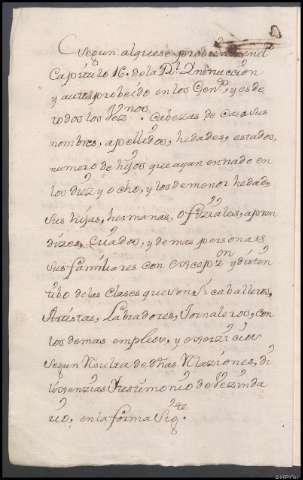 Segun alquese probiene en el
Capitulo 16. de la Rl. Ynstruccion
y autos probeido en los Genes. y es de
todos los Vezinos. Cabezas de Casa sus
nombres, apellidos, hedades, estados,
numero de hijos que ayan entrado en
los diez y ocho, y los de menor hedad
sus hijas, hermanas, ofiziales, apren
dizes, Criados, y demas personas
sus familiares con excepzon y distin
tibo de las Clases que son caballeros,
Artistas, Labradores, Jornaleros, con
los demas empleos, y exerzizios
Segun Resulta de dhas Relaziones, di
lixenzias y testimonio de Vezinda
rio, en la forma Sigte.